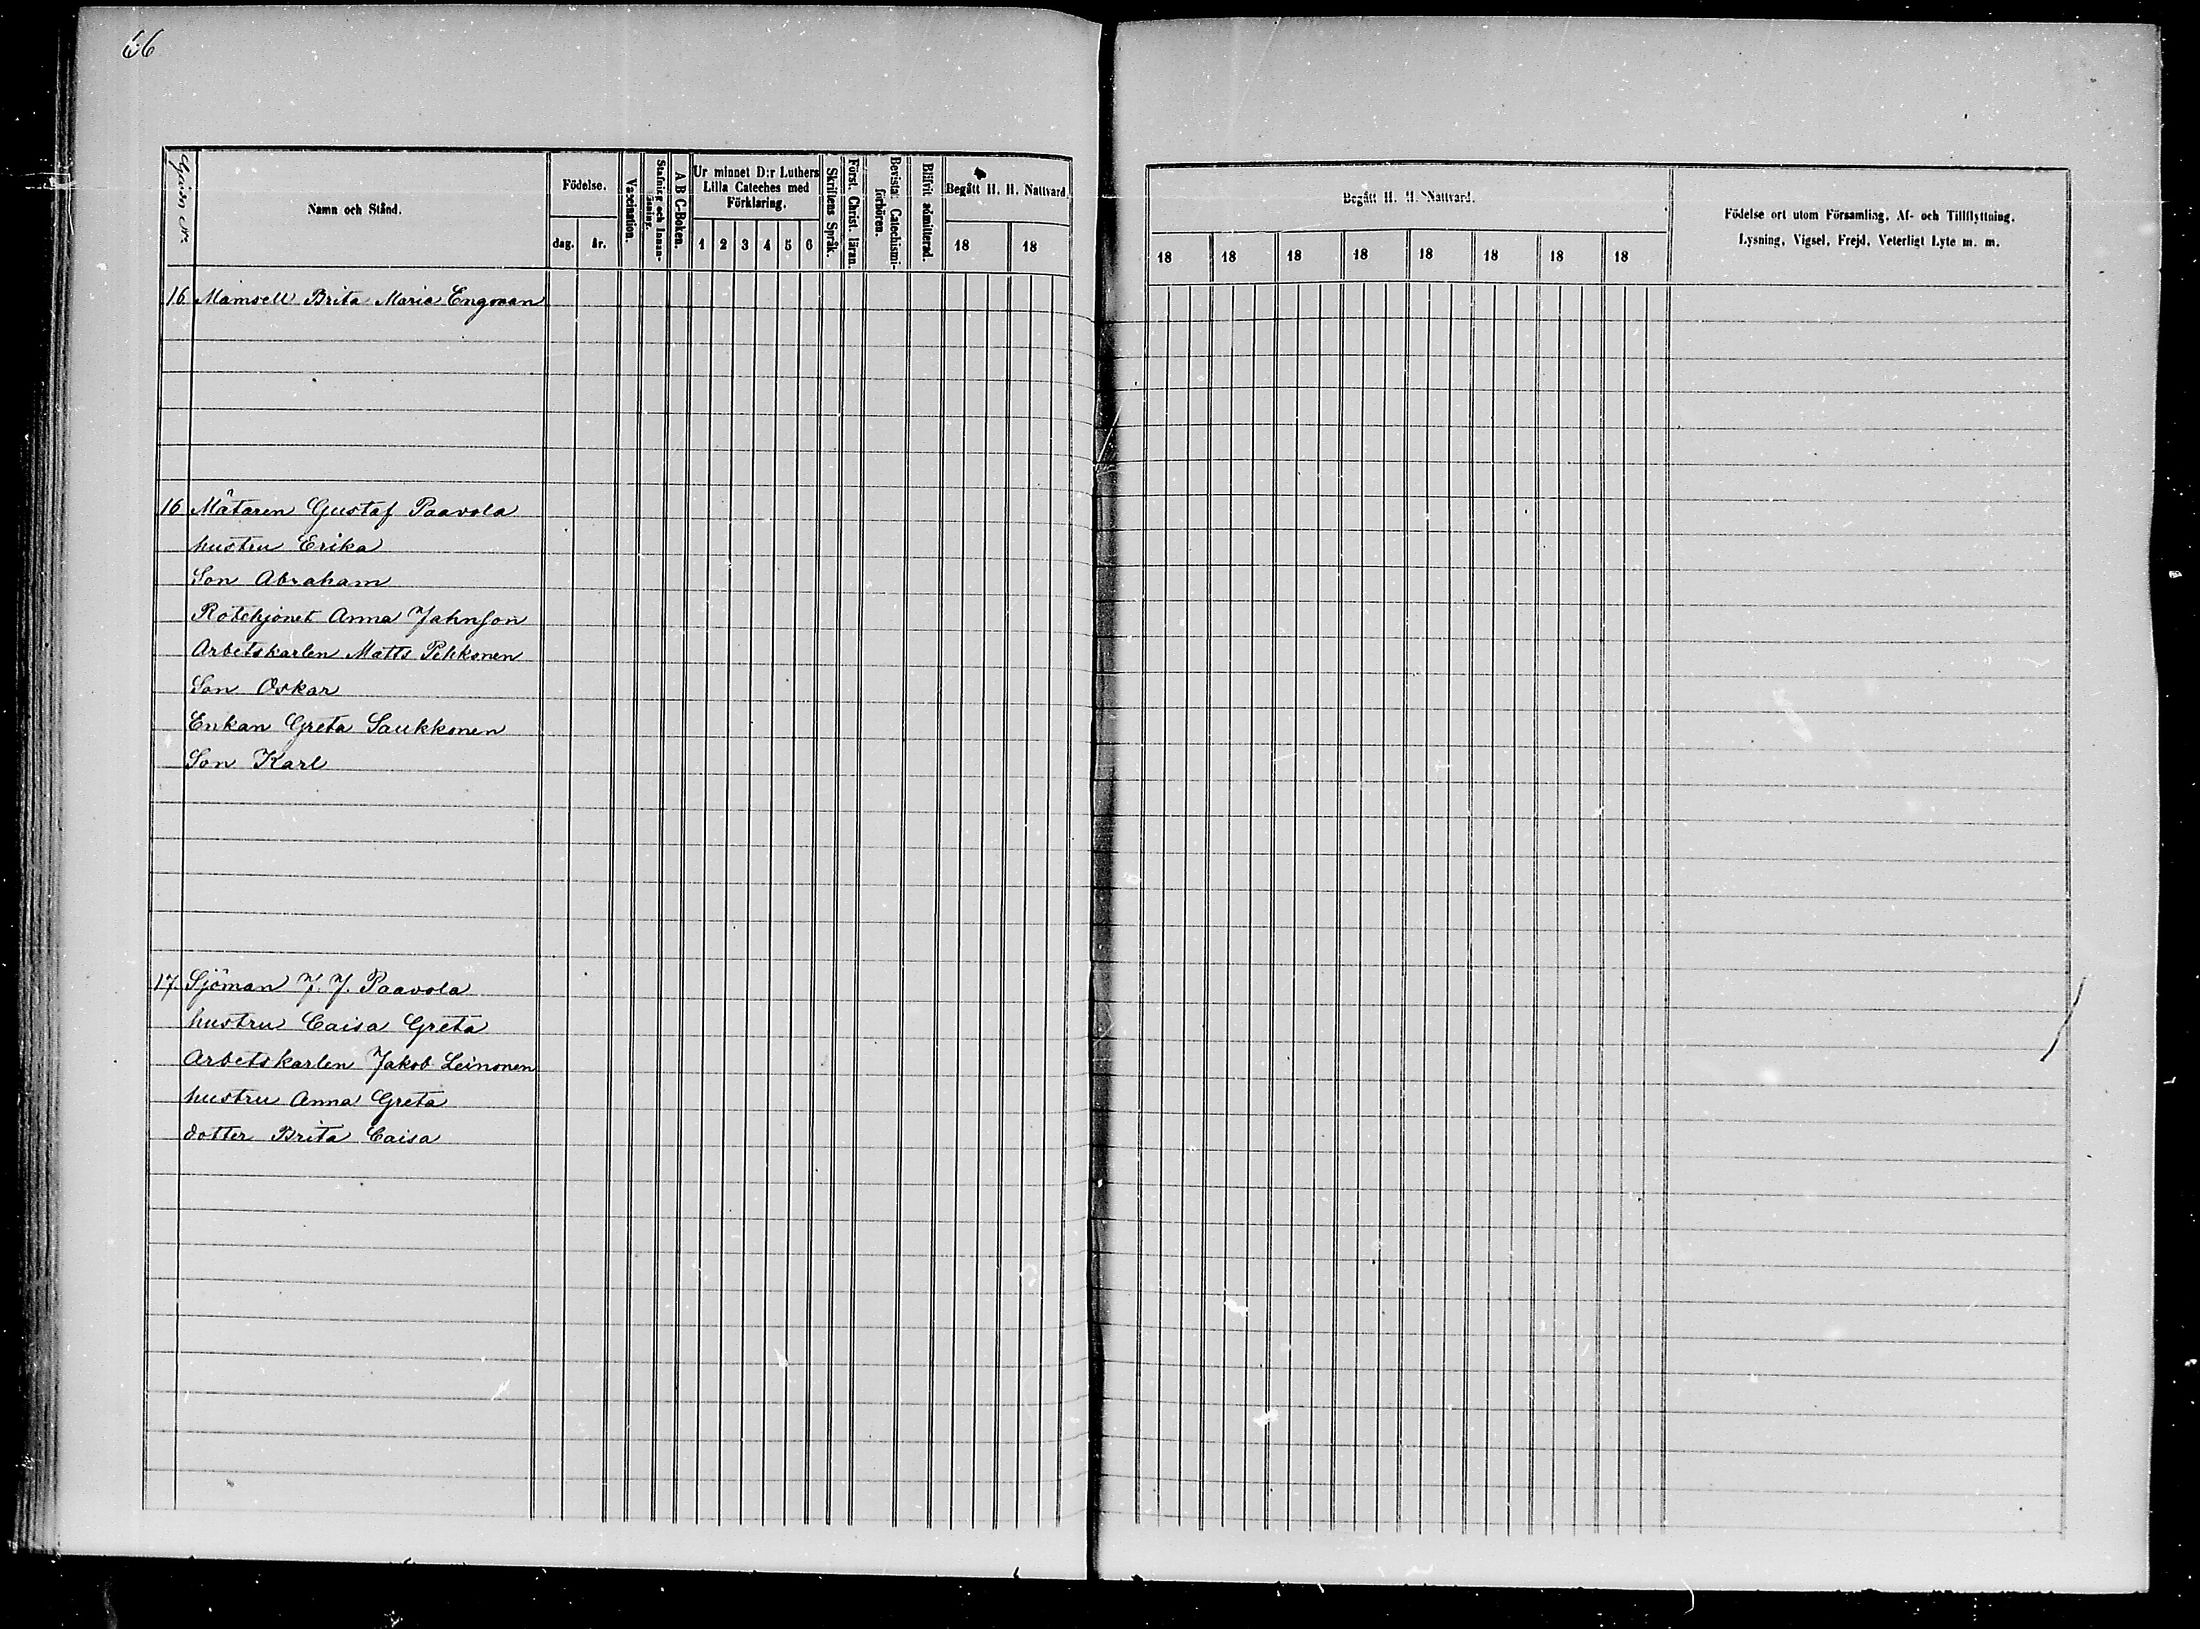 66
Gårn Nr.
Namn och Stånd.
Födelse.
dag. år.
Vaccination.
Stafning och Innanläsning.
A B C-Boken.
Ur minnet D:r Luthers
Lilla Cateches med
Förklaring.
1 2 3 4 5 6
Skriftens Språk.
Först. Christ. läran.
Bevistat Catechismi-
förhören.
Blifvit admitterad.
Begått H. H. Nattvard.
18 18
Begått H. H. Nattvard.
18 18 18 18 18 18 18 18
Födelse ort utom Församling, Af- och Tillflyttning,
Lysning, Vigsel, Frejd, Veterligt Lyte m. m.
16 Mamsell Brita Maria Engman
16 Mätaren Gustaf Paavola
hustru Erika
Son Abraham
Rotehjonet Anna Jahnson
Arbetskarlen Matts Pekkonen
Son Oskar
Enkan Greta Saukkonen
Son Karl
17. Sjöman J. J. Paavola
hustru Caisa Greta
Arbetskarlen Jakob Leinonen
hustru Anna Greta
dotter Brita Caisa